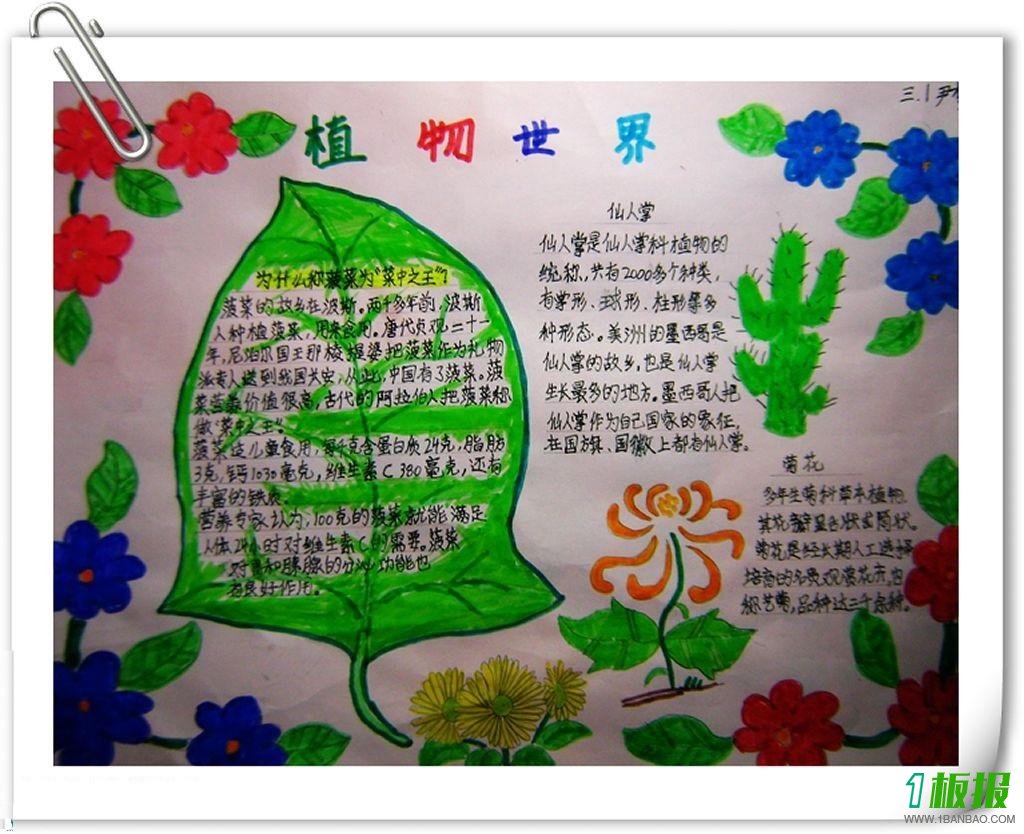 三.1 尹
植物世界
为什么称菠菜为"菜中之王"?
菠菜的故乡在波斯。两千多年前,波斯
人种植菠菜,用来食用。唐代贞观二十一
年,尼泊尔国王那梭提婆把菠菜作为礼物
派专人送到我国长安,从此,中国有了菠菜。菠
菜营养价值很高,古代的阿拉伯人把菠菜称
做"菜中之王"
菠菜适儿童食用,每千克含蛋白质24克,脂肪
3克,钙1030毫克,维生素C380毫克,还有
丰富的铁质
营养专家认为,100克的菠菜就能满足
人体24小时对维生素C的需要。菠菜
对胃和胰腺的分泌功能也
有良好作用。
仙人掌
仙人掌是仙人掌科植物的
统称,共有2000多个种类,
有掌形、球形、柱形等多
种形态。美洲的墨西哥是
仙人掌的故乡,也是仙人掌
生长最多的地方。墨西哥人把
仙人掌作为自己国家的象征,
在国旗、国徽上都有仙人掌。
菊花
多年生菊科草本植物
其花瓣呈舌状或筒状。
菊花是经长期人工选择
培育的名贵观赏花卉,也
称艺菊,品种达三千余种。
1板报
WWW.1BANBAO.COM